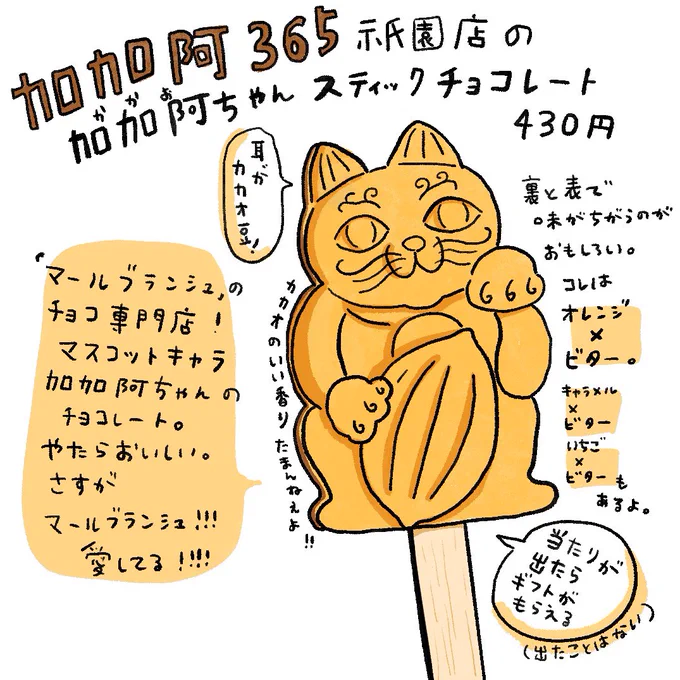 加加阿365 祇園店の
加加阿ちゃん スティックチョコレート
かかお
430円
耳が
カカオ豆!
裏と表で
味がちがうのが
おもしろい。
コレは
オレンジ
×
ビター。
キャラメル
×
ビター
いちご
×
ビターも
あるよ。
「マールブランシュ」の
チョコ専門店!
マスコットキャラ
加加阿ちゃんの
チョコレート。
やたらおいしい。
さすが
マールブランシュ!!!
愛してる!!!!
カカオのいい香りたまんねぇよ!!
当たりが
出たら
ギフトが
もらえる
(出たことはない)